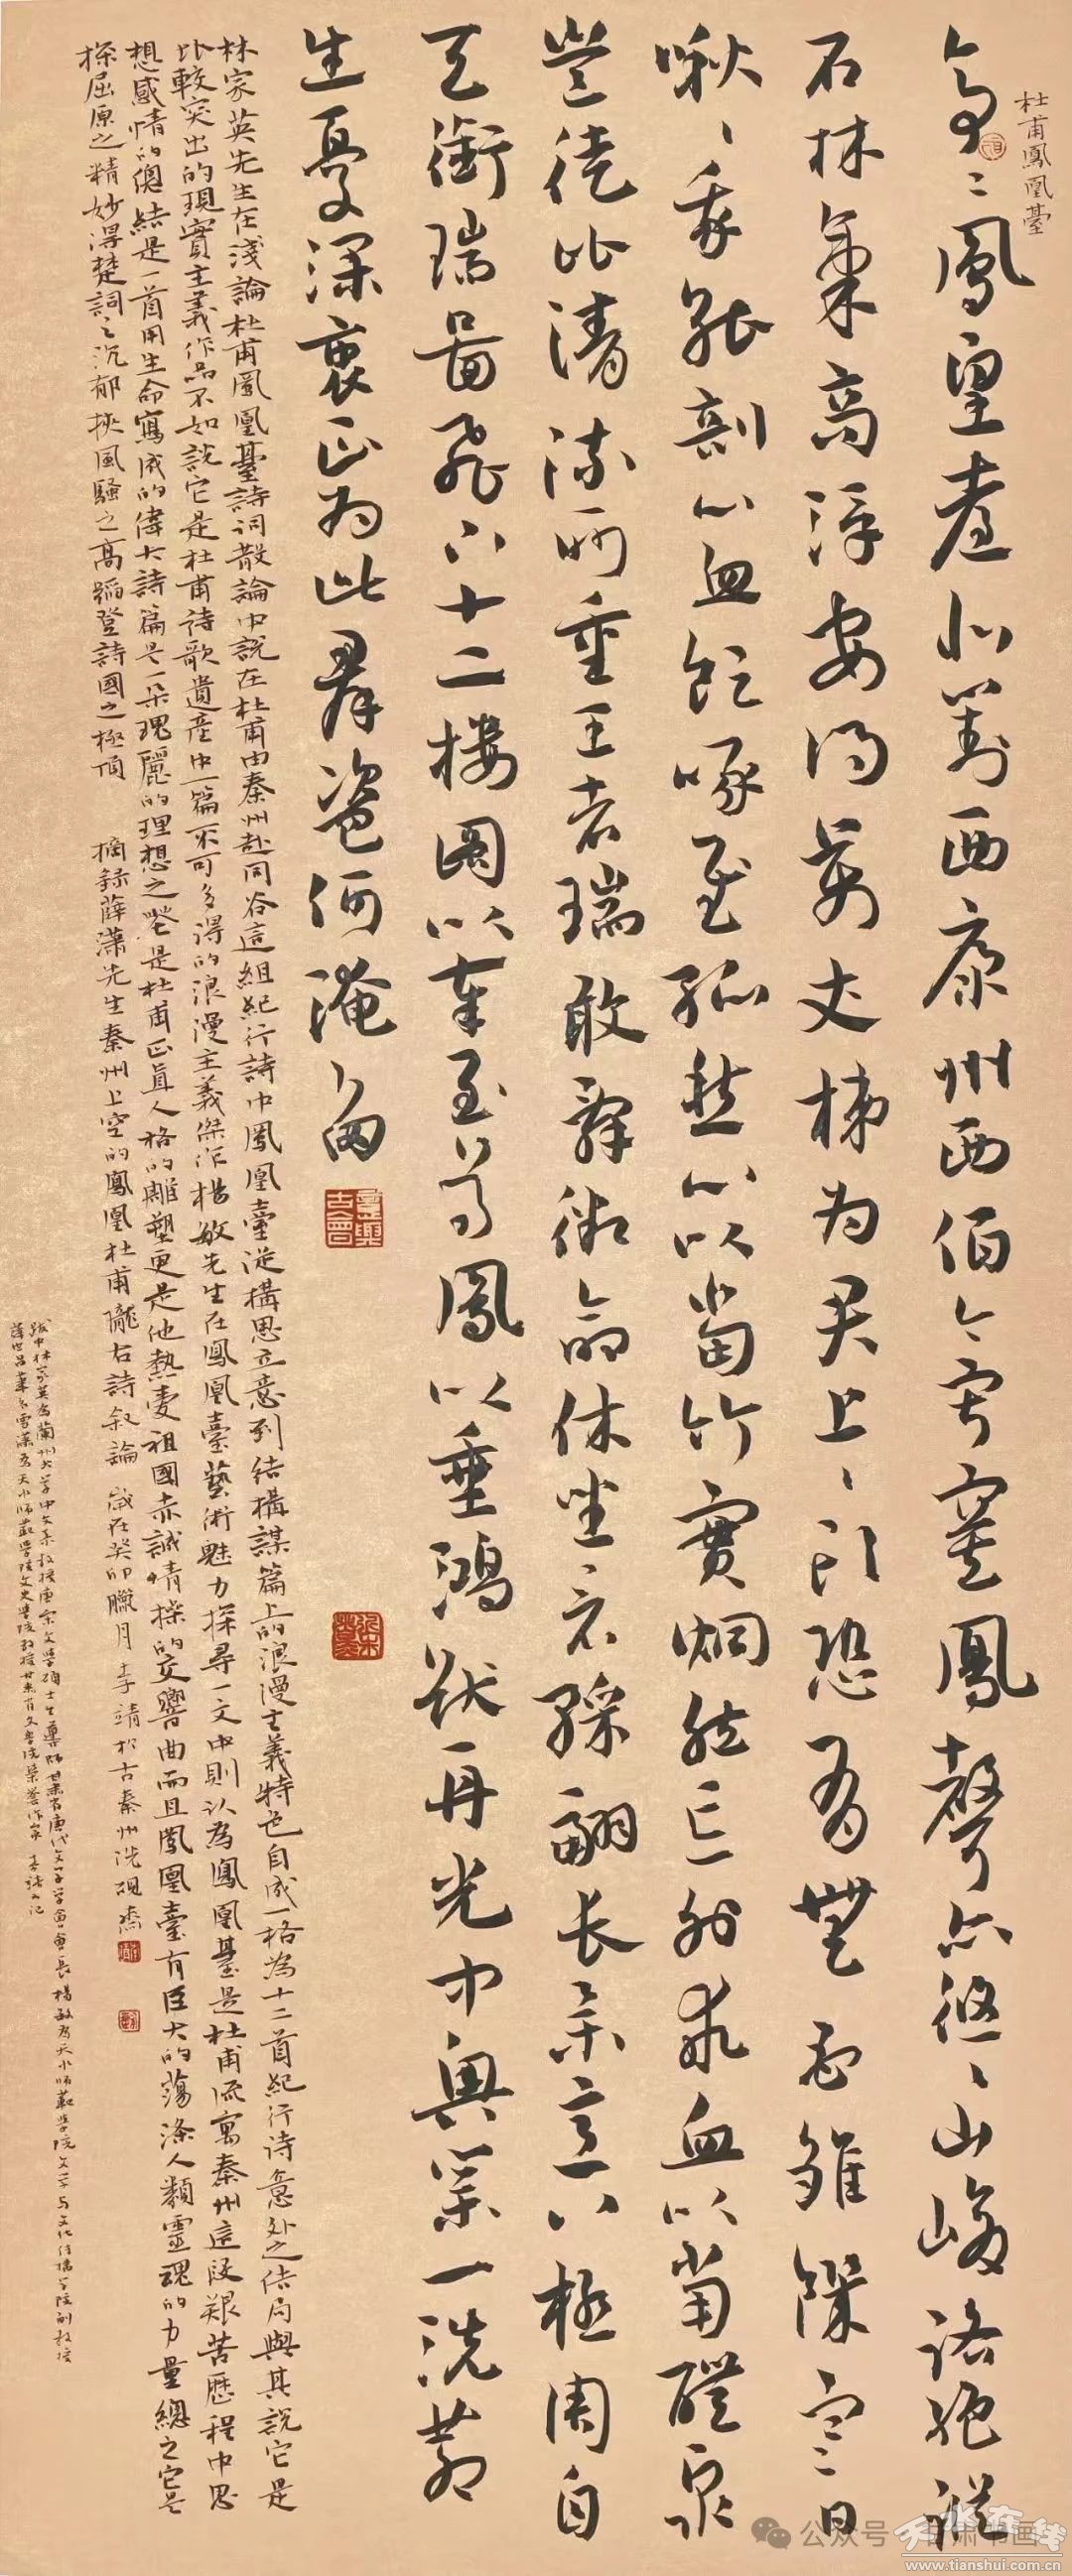 杜甫鳳凰臺
亭〻鳳皇臺北對西康州西伯今寂寞鳳聲亦悠〻山峻路絕蹤
石林氣高浮安得萬丈梯為君上〻頭恐有無母雛饑寒日
啾〻我能剖心血飲啄慰孤愁心以當竹實炯然忘外求血以當醴泉
豈徒比清流所重王者瑞敢辭微命休坐看綵翮長舉意八極周自
天銜瑞圖飛下十二樓圖以奉至尊鳳以垂鴻猷再光中興業一洗蒼
生憂深衷正為此群盜何淹留
林家英先生在淺論杜甫鳳凰臺詩詞散論中說在杜甫由秦州赴同谷這組紀行詩中鳳凰臺從構思立意到結構謀篇上的浪漫主義特色自成一格為十二首紀行诗意外之佶局與其說它是
比較突出的現實主義作品不如說它是杜甫诗歌遺産中一篇不可多得的浪漫主義傑作楊敏先生在鳳凰臺藝術魅力探尋一文中則认為鳳凰臺是杜甫流寓秦州這段艱苦歷程中思
想感情的總結是一首用生命寫成的偉大詩篇是一朵瑰麗的理想之花是杜甫正直人格的雕塑更是他熱愛祖國赤誠情操的交響曲而且鳳凰臺有巨大的蕩滌人類靈魂的力量總之它是
探屈原之精妙得楚詞之沉郁挾風騷之高蹈登詩國之極頂 摘錄薛瀟先生秦州上空的鳳凰杜甫隴右詩叙論 歲在癸卯臘月李靖於古秦州洗硯齋
跋中林家英為蘭州大學中文系教授唐宋文學碩士生導師甘肃省唐代文學學會會長楊敏為天水師範學院文學与文化傳播学院副教授
公众号 甘肃书画
天水在线
www.tianshui.com.cn